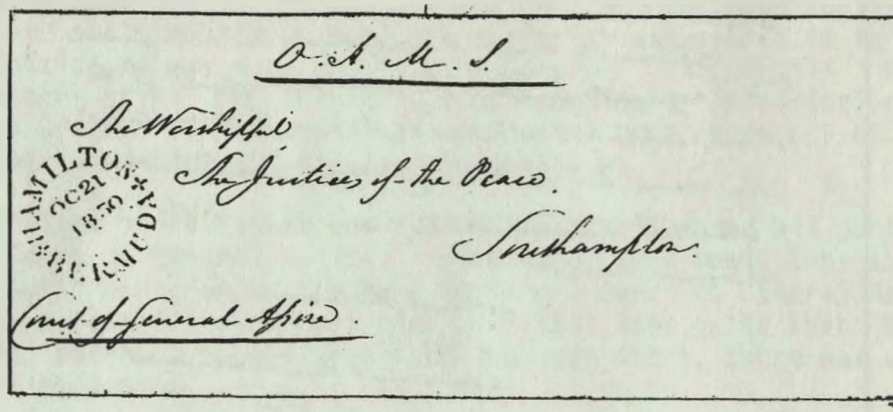 O. H. M. S.
The Worshipful
The Justices of the Peace.
Southampton.
HAMILTON BERMUDA
OC 21
1850
Court of General Assize.